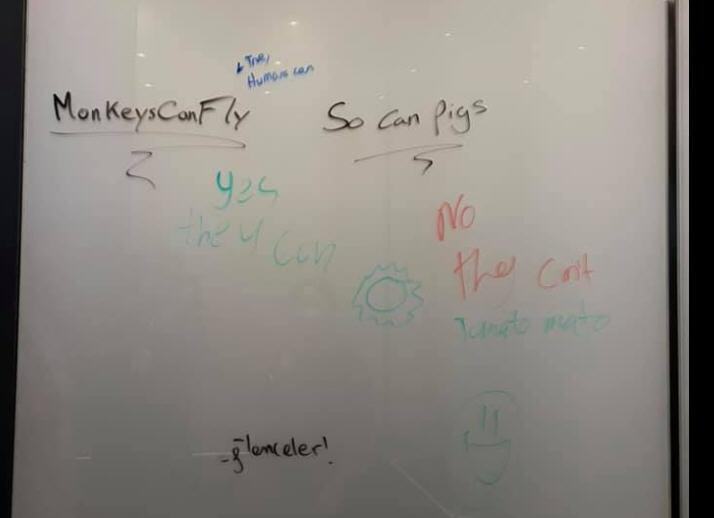 True,
Humans can
MonkeysCanFly
So can pigs
yes
they can
No
they can't
Tomato mato